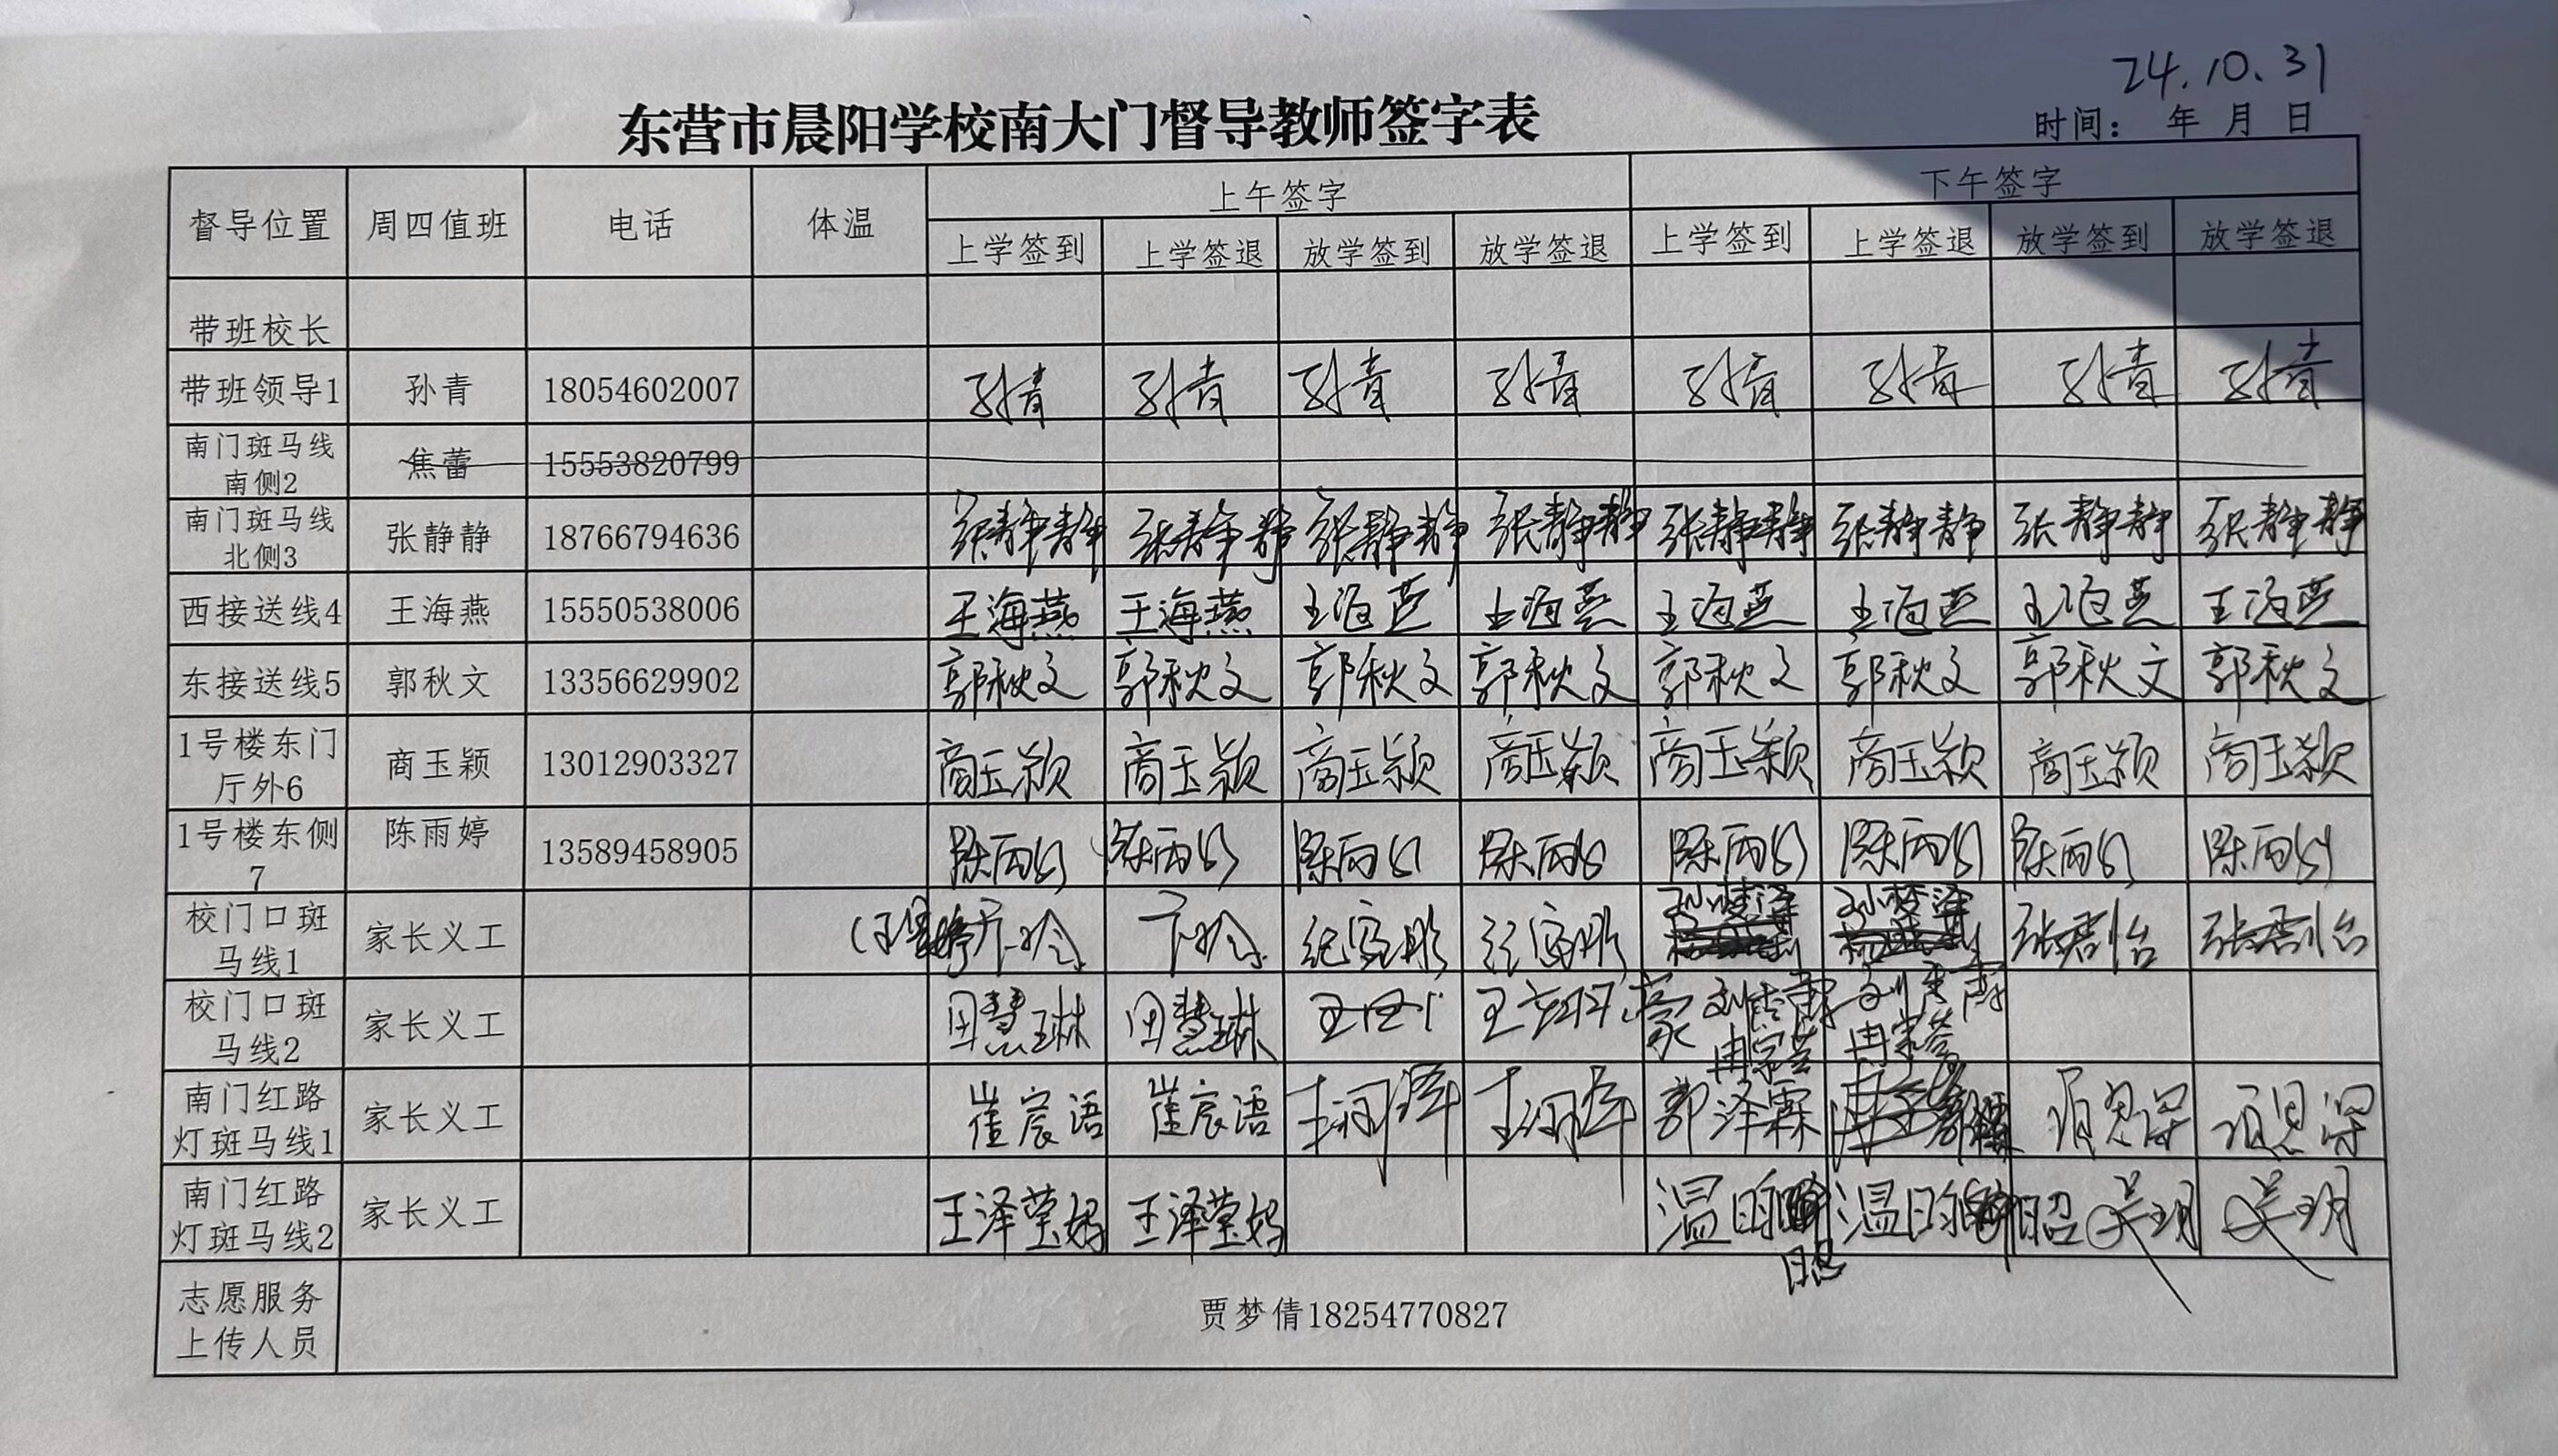 24.10.31
东营市晨阳学校南大门督导教师签字表
时间： 年 月 日
督导位置 周四值班 电话 体温 上午签字 下午签字
上学签到 上学签退 放学签到 放学签退 上学签到 上学签退 放学签到 放学签退
带班校长
带班领导1 孙青 18054602007 孙青 孙青 孙青 孙青 孙青 孙青 孙青 孙青
南门斑马线
南侧2 焦蕾 15553820799
南门斑马线
北侧3 张静静 18766794636 张静静 张静静 张静静 张静静 张静静 张静静 张静静 张静静
西接送线4 王海燕 15550538006 王海燕 王海燕 王海燕 王海燕 王海燕 王海燕 王海燕 王海燕
东接送线5 郭秋文 13356629902 郭秋文 郭秋文 郭秋文 郭秋文 郭秋文 郭秋文 郭秋文 郭秋文
1号楼东门
厅外6 商玉颖 13012903327 商玉颖 商玉颖 商玉颖 商玉颖 商玉颖 商玉颖 商玉颖 商玉颖
1号楼东侧
7 陈雨婷 13589458905 陈雨婷 陈雨婷 陈雨婷 陈雨婷 陈雨婷 陈雨婷 陈雨婷 陈雨婷
校门口斑
马线1 家长义工 孙梦泽 孙梦泽
校门口斑
马线2 家长义工 田慧琳 田慧琳
南门红路
灯斑马线1 家长义工 崔宸语 崔宸语 郭泽霖
南门红路
灯斑马线2 家长义工 王泽莹妈 王泽莹妈 吴玥 吴玥
志愿服务
上传人员 贾梦倩18254770827